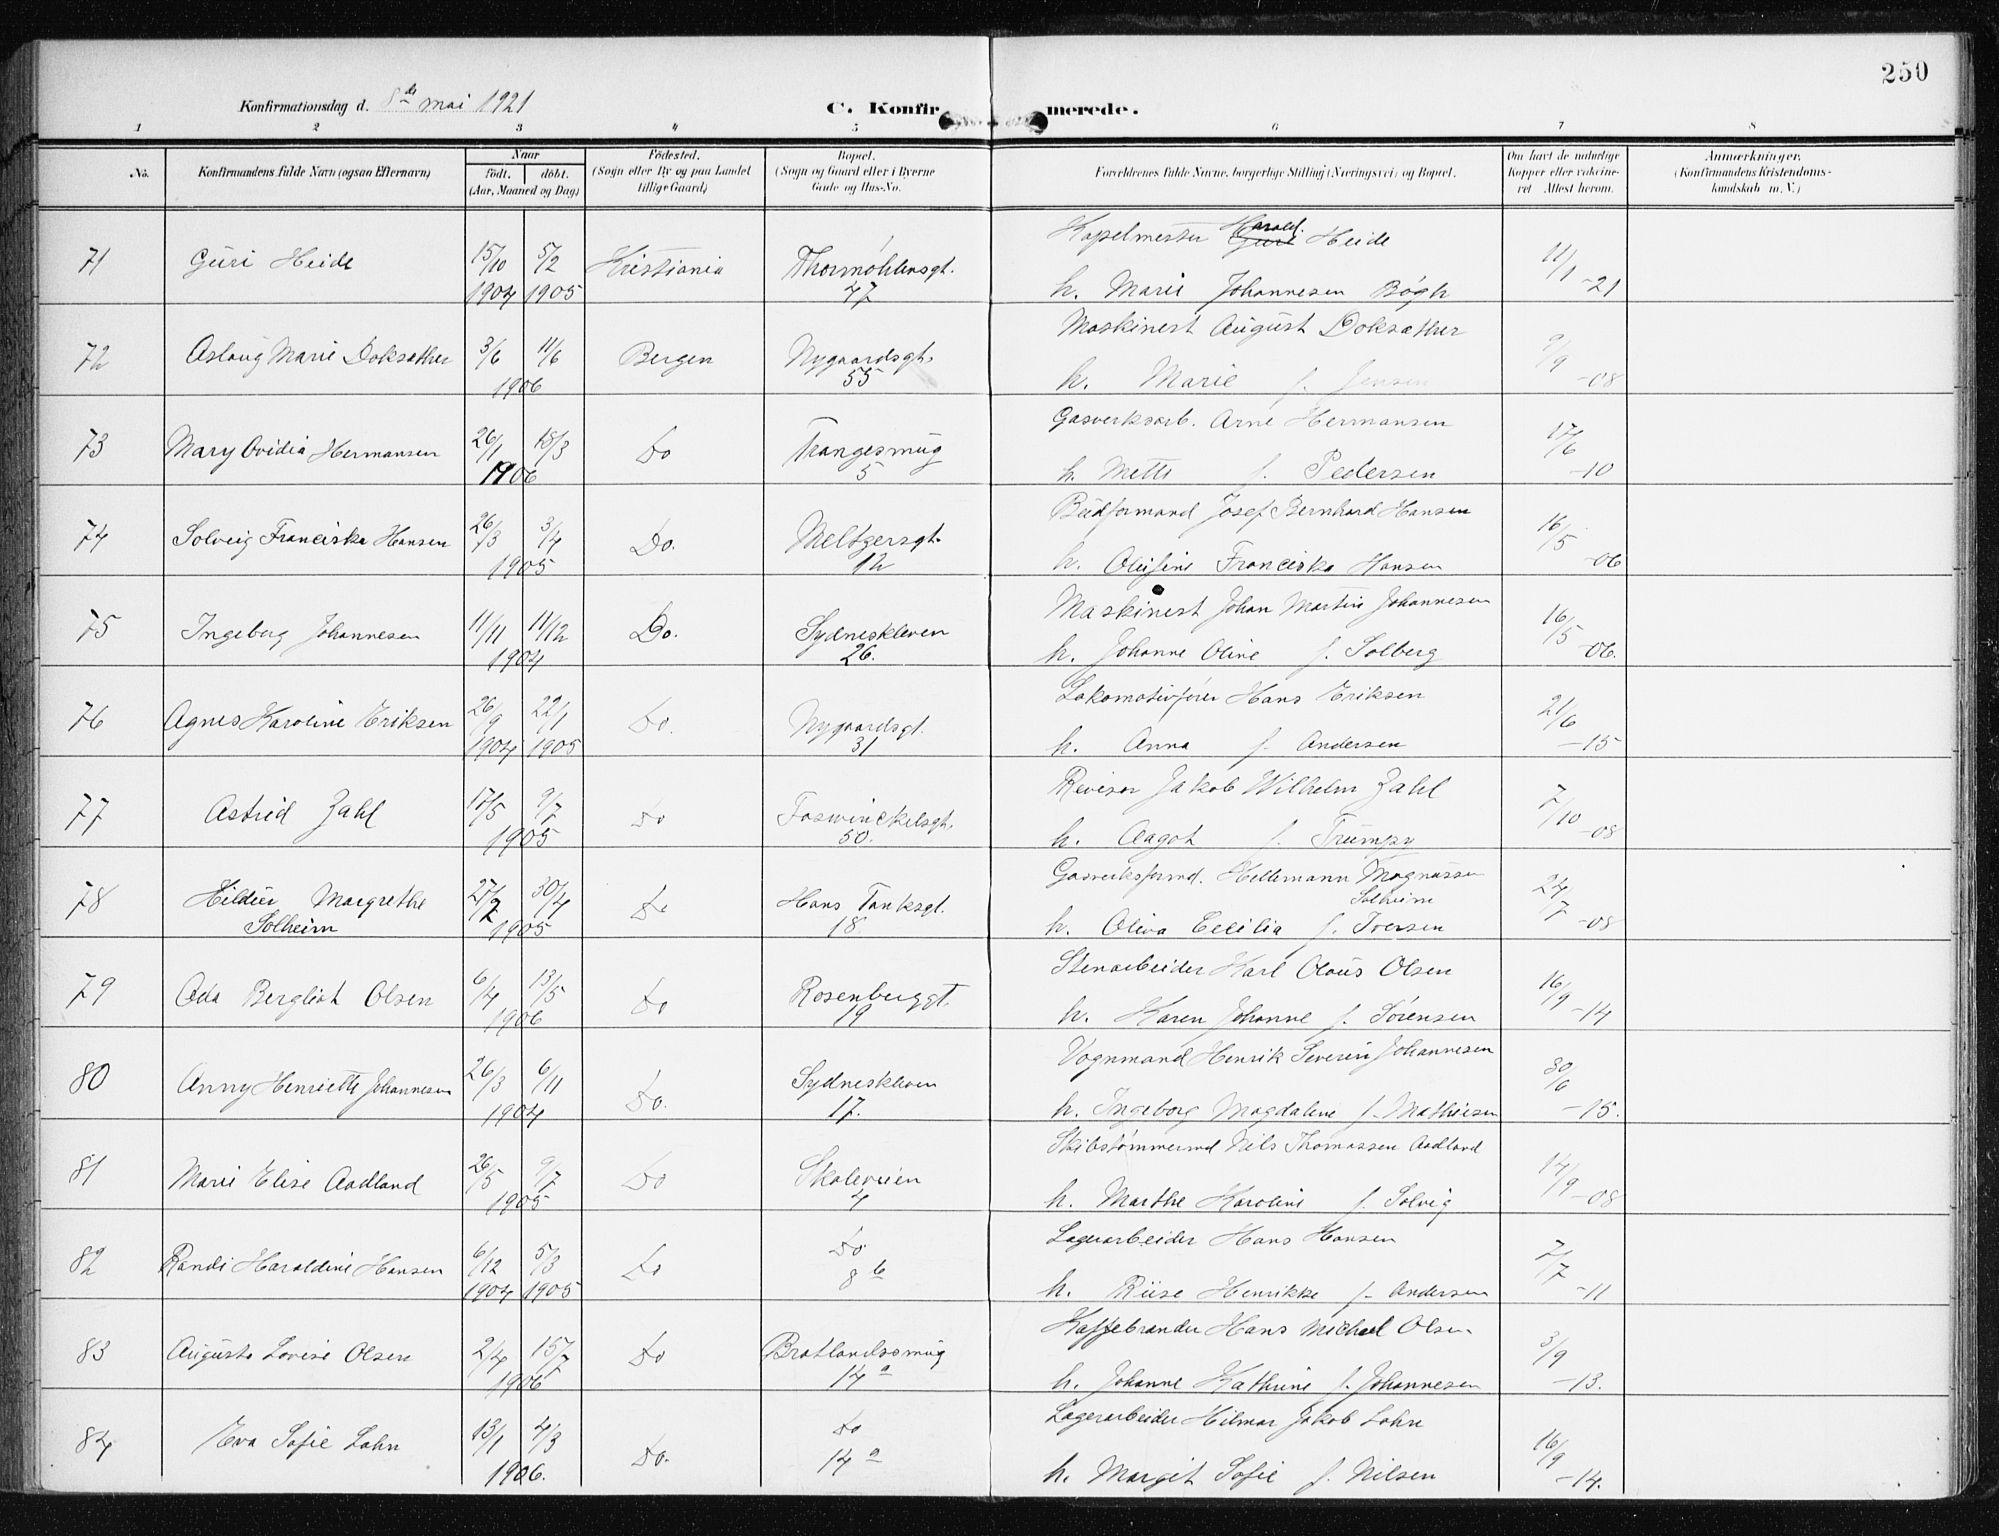 250
Konfirmationsdag d. 8de mai 1921
C. Konfirmerede.
1 2 3 4 5 6 7 8
No.
Konfirmandens fulde Navn (ogsaa Efternavn)
Naar
födt. döbt.
(Aar, Maaned og Dag)
Födested.
(Sogn eller By og paa Landet
tillige Gaard)
Bopæl.
(Sogn og Gaard eller i Byerne
Gade og Hus-No.
Forældrenes fulde Navne, borgerlige Stilling (Næringsvei) og Bopæl.
Om havt de naturlige
Kopper eller vakcine-
ret Attest herom.
Anmærkninger.
(Konfirmandens Kristendoms-
kundskab m. V.)
71 Guri Heide 15/10 1904 5/2 1905 Kristiania Thormøhlensgt. 47
Kapelmester Harald Heide
h. Marie Johannesen Bøgh 11/1 -21
72 Aslaug Marie Doksæther 3/6 11/6 1906 Bergen Nygaardsgt. 55
Maskinist August Doksæther
h. Marie f. Jensen 9/9 -08
73 Mary Ovidia Hermansen 26/1 18/3 1906 Do Trangesmug 5
Gasverksarb. Arne Hermansen
h. Mette f. Pedersen 17/6 -10
74 Solveig Franciska Hansen 26/3 3/4 1905 Do. Meltzersgt. 12
Budformand Josef Bernhard Hansen
h. Olufine Franciska Hansen 16/5 -06
75 Ingeborg Johannesen 11/11 11/12 1904 Do. Sydneskleven 26.
Maskinist Johan Martin Johannesen
h. Johanne Oline f. Solberg 16/5 -06.
76 Agnes Karoline Eriksen 26/9 1904 22/1 1905 Do. Nygaardsgt. 31
Lokomotivfører Hans Eriksen
h. Anna f. Andersen 21/6 -15
77 Astrid Zahl 17/5 9/7 1905 Do Foswinckelsgt. 50.
Revisor Jakob Wilhelm Zahl
h. Aagot f. Trumpy 7/10 -08
78 Hildur Margrethe
Solheim 27/2 30/4 1905 Do Hans Tanksgt. 18
Gasverksformd. Hellemann Magnussen
Solheim
h. Oliva Cecilia f. Iversen 24/7 -08
79 Oda Bergliot Olsen 6/4 13/5 1906 Do Rosenberggt. 19
Stenarbeider Karl Olaus Olsen
h. Karen Johanne f. Sørensen 16/9 -14
80 Anny Henriette Johannesen 26/3 6/11 1904 Do. Sydneskleven 17.
Vognmand Henrik Severin Johannesen
h. Ingeborg Magdaline f. Mathiesen 30/6 -15.
81 Marie Elise Aadland 26/5 9/7 1905 Do Skoleveien 4
Skibstømmermd Nils Thomassen Aadland
h. Marthe Karoline f. Solvig 14/9 -08
82 Randi Haraldine Hansen 6/12 1904 5/3 1905 Do Do 8 b
Lagerarbeider Hans Hansen
h. Henrikke f. Andersen 7/7 -11
83 Augusta Lovise Olsen 2/4 15/7 1906 Do Bratlandssmug 14 a
Kaffebrander Hans Michael Olsen
h. Johanne Kathrine f. Johannesen 3/9 -13.
84 Eva Sofie Lohn 13/1 4/3 1906. Do. Do 14 a
Lagerarbeider Hilmar Jakob Lohn
h. Margit Sofie f. Nilsen 16/9 -14.